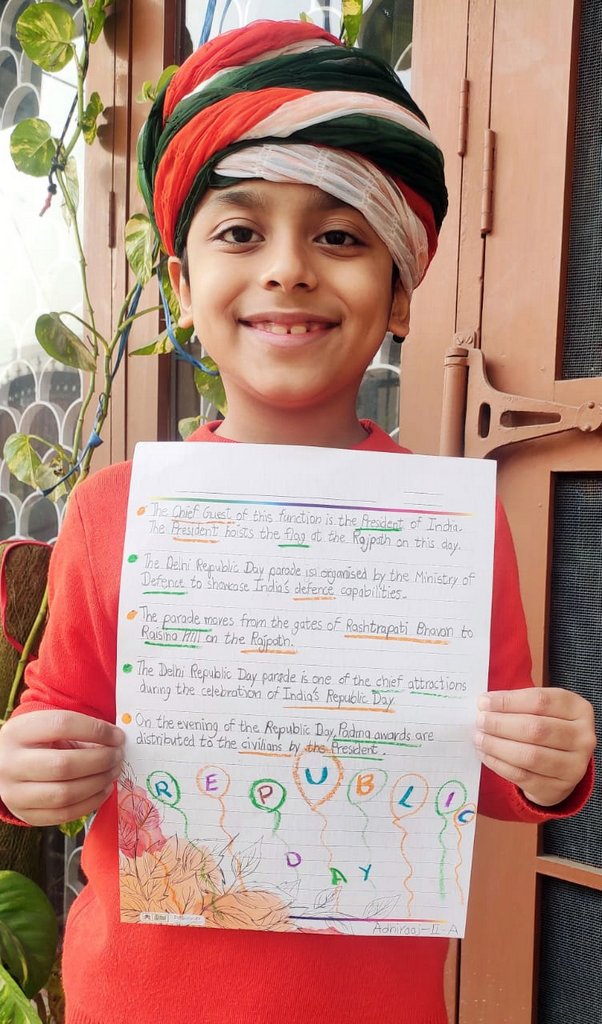 The Chief Guest of this function is the President of India.
The President hoists the flag at the Rajpath on this day.
The Delhi Republic Day parade is organised by the Ministry of
Defence to showcase India's defence capabilities.
The parade moves from the gates of Rashtrapati Bhavan to
Raisina Hill on the Rajpath.
The Delhi Republic Day parade is one of the chief attractions
during the celebration of India's Republic Day.
On the evening of the Republic Day, Padma awards are
distributed to the civilians by the President.
REPUBLIC
DAY
Adhiraaj-II-A